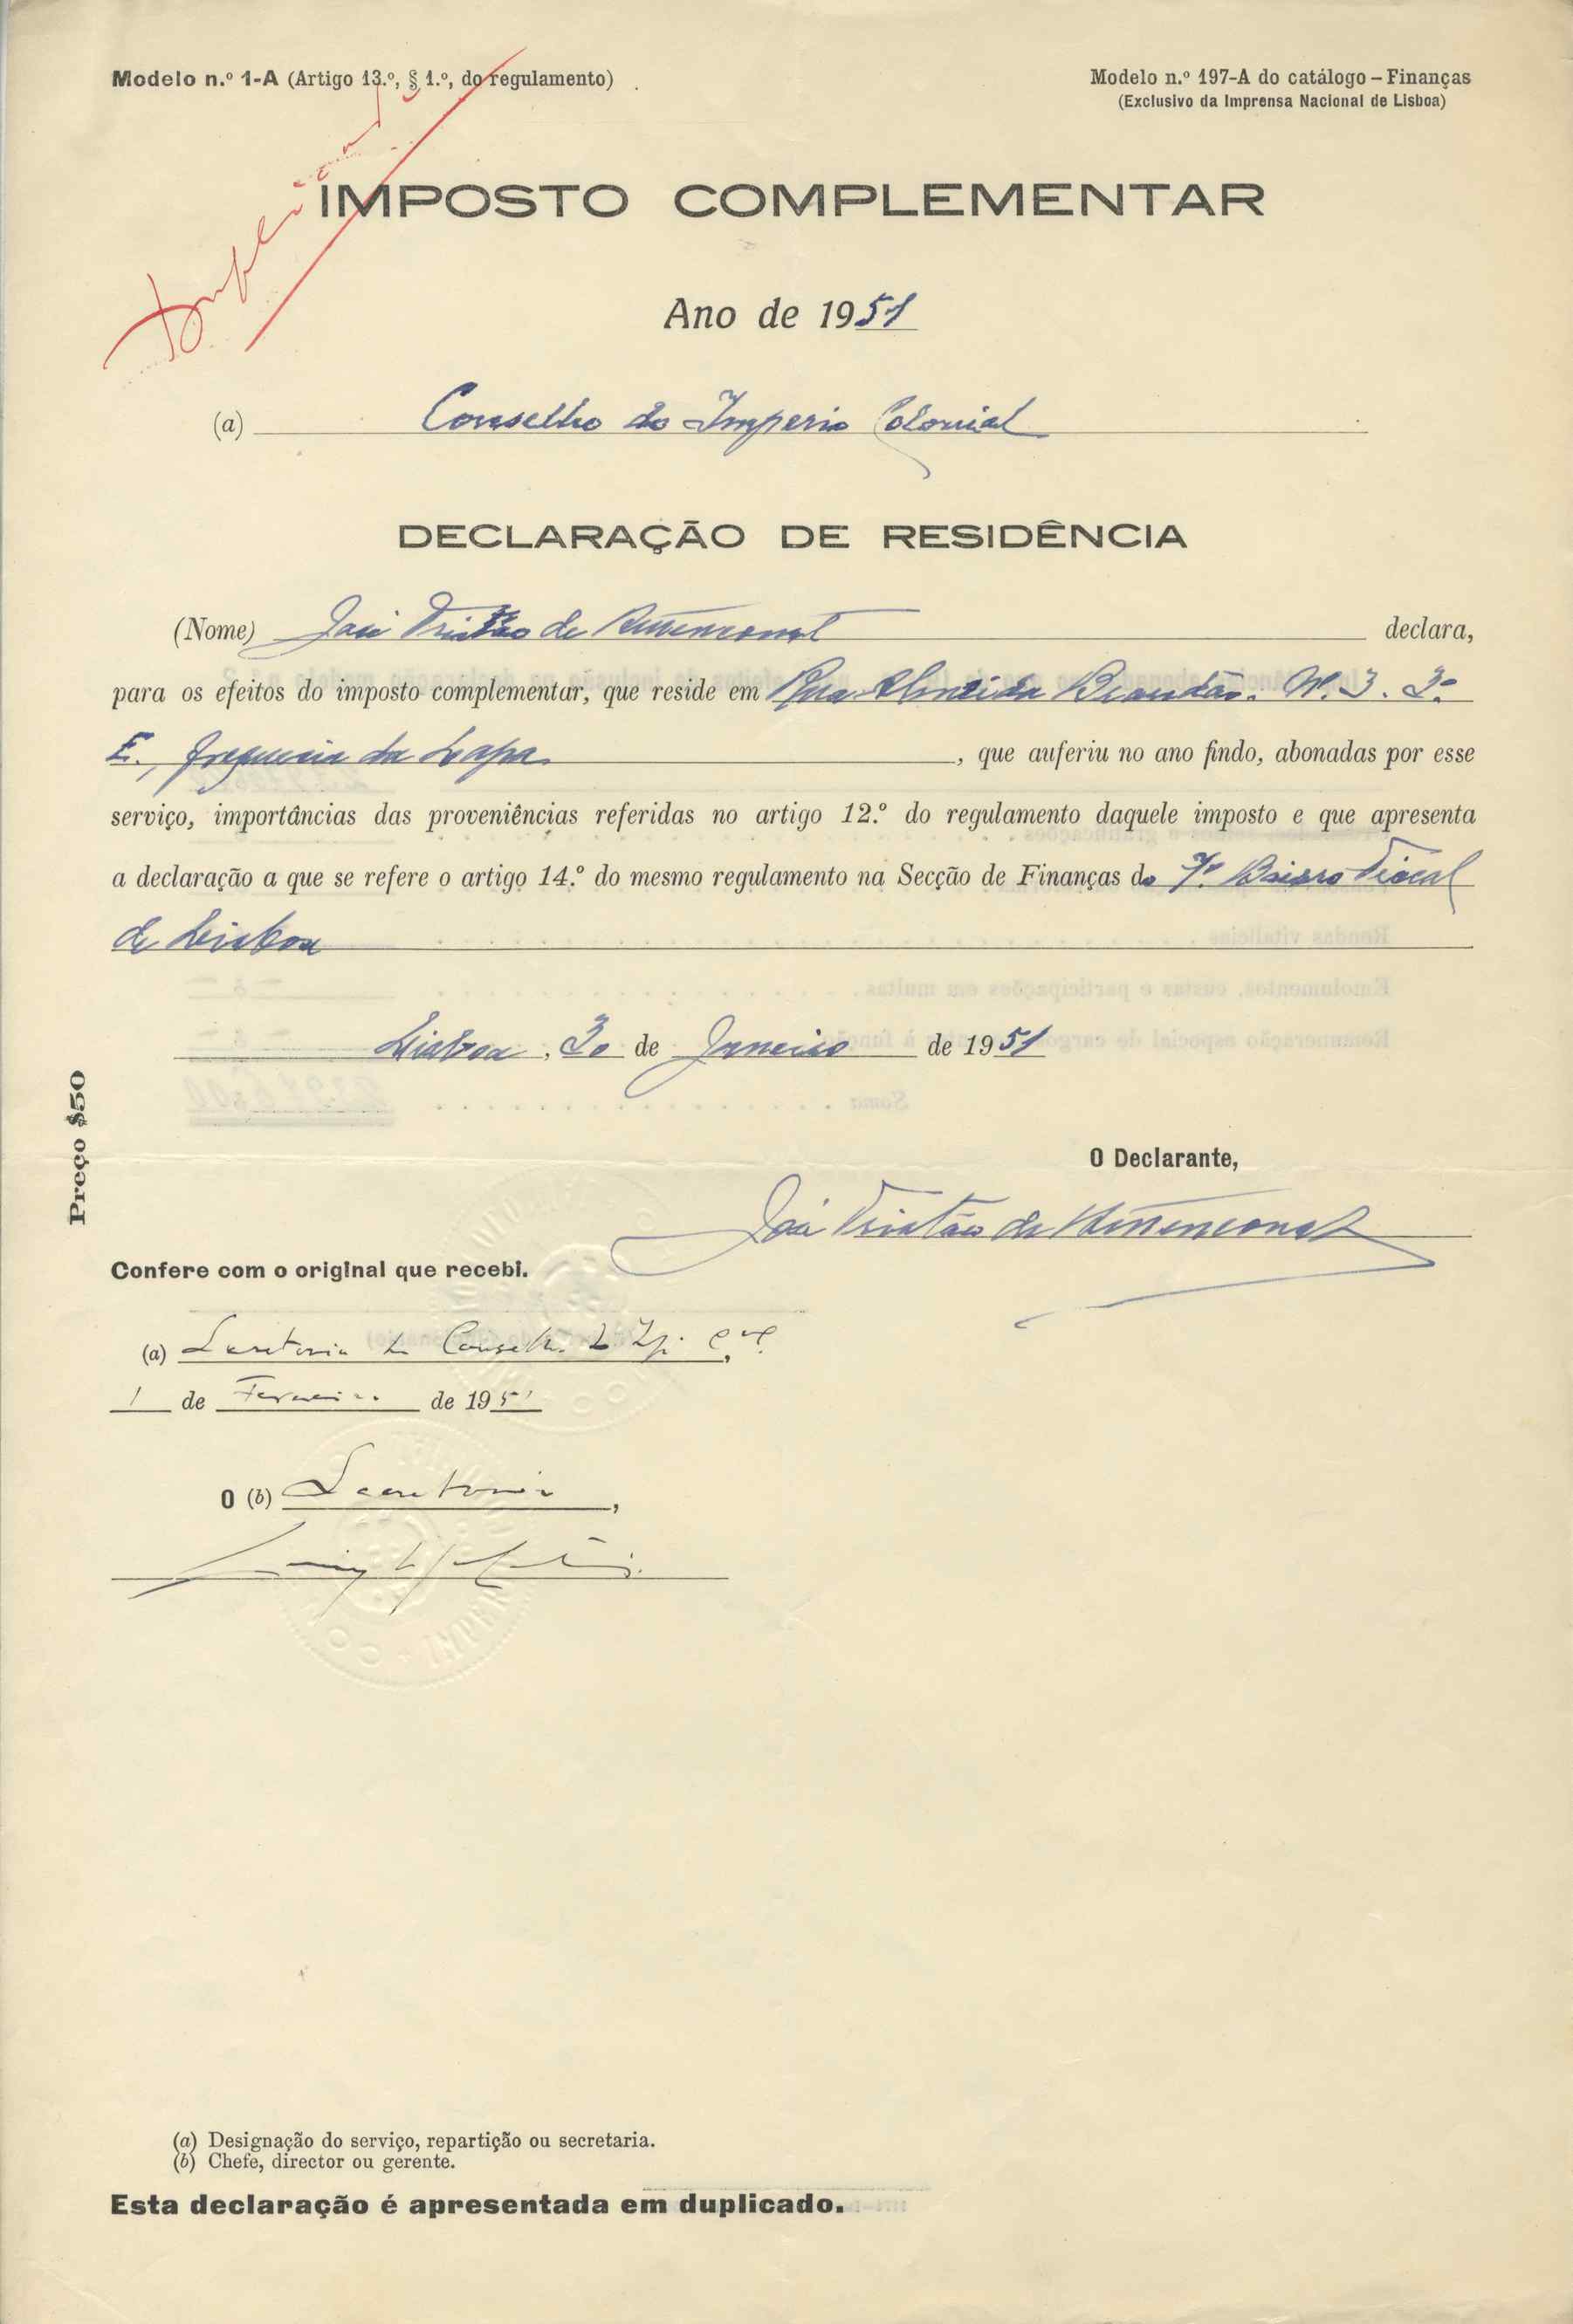 Modelo n.º 1-A (Artigo 13.º, § 1.º, do regulamento)
Modelo n.º 197-A do catálogo – Finanças
(Exclusivo da Imprensa Nacional de Lisboa)
IMPOSTO COMPLEMENTAR
Ano de 1951
(a) Conselho do Imperio Colonial
DECLARAÇÃO DE RESIDÊNCIA
(Nome) José Tristão de Bettencourt declara,
para os efeitos do imposto complementar, que reside em Rua Almeida Brandão. Nº. 3. 3º
E., freguesia da Lapa, que auferiu no ano findo, abonadas por esse
serviço, importâncias das proveniências referidas no artigo 12.º do regulamento daquele imposto e que apresenta
a declaração a que se refere o artigo 14.º do mesmo regulamento na Secção de Finanças do 7º. Bairro Fiscal
de Lisboa
Lisboa, 30 de Janeiro de 1951
Preço $50
O Declarante,
José Tristão de Bettencourt
Confere com o original que recebi.
(a) Secretaria do Conselho do
1 de Fevereiro de 1951
O (b) Secretario,
(a) Designação do serviço, repartição ou secretaria.
(b) Chefe, director ou gerente.
Esta declaração é apresentada em duplicado.